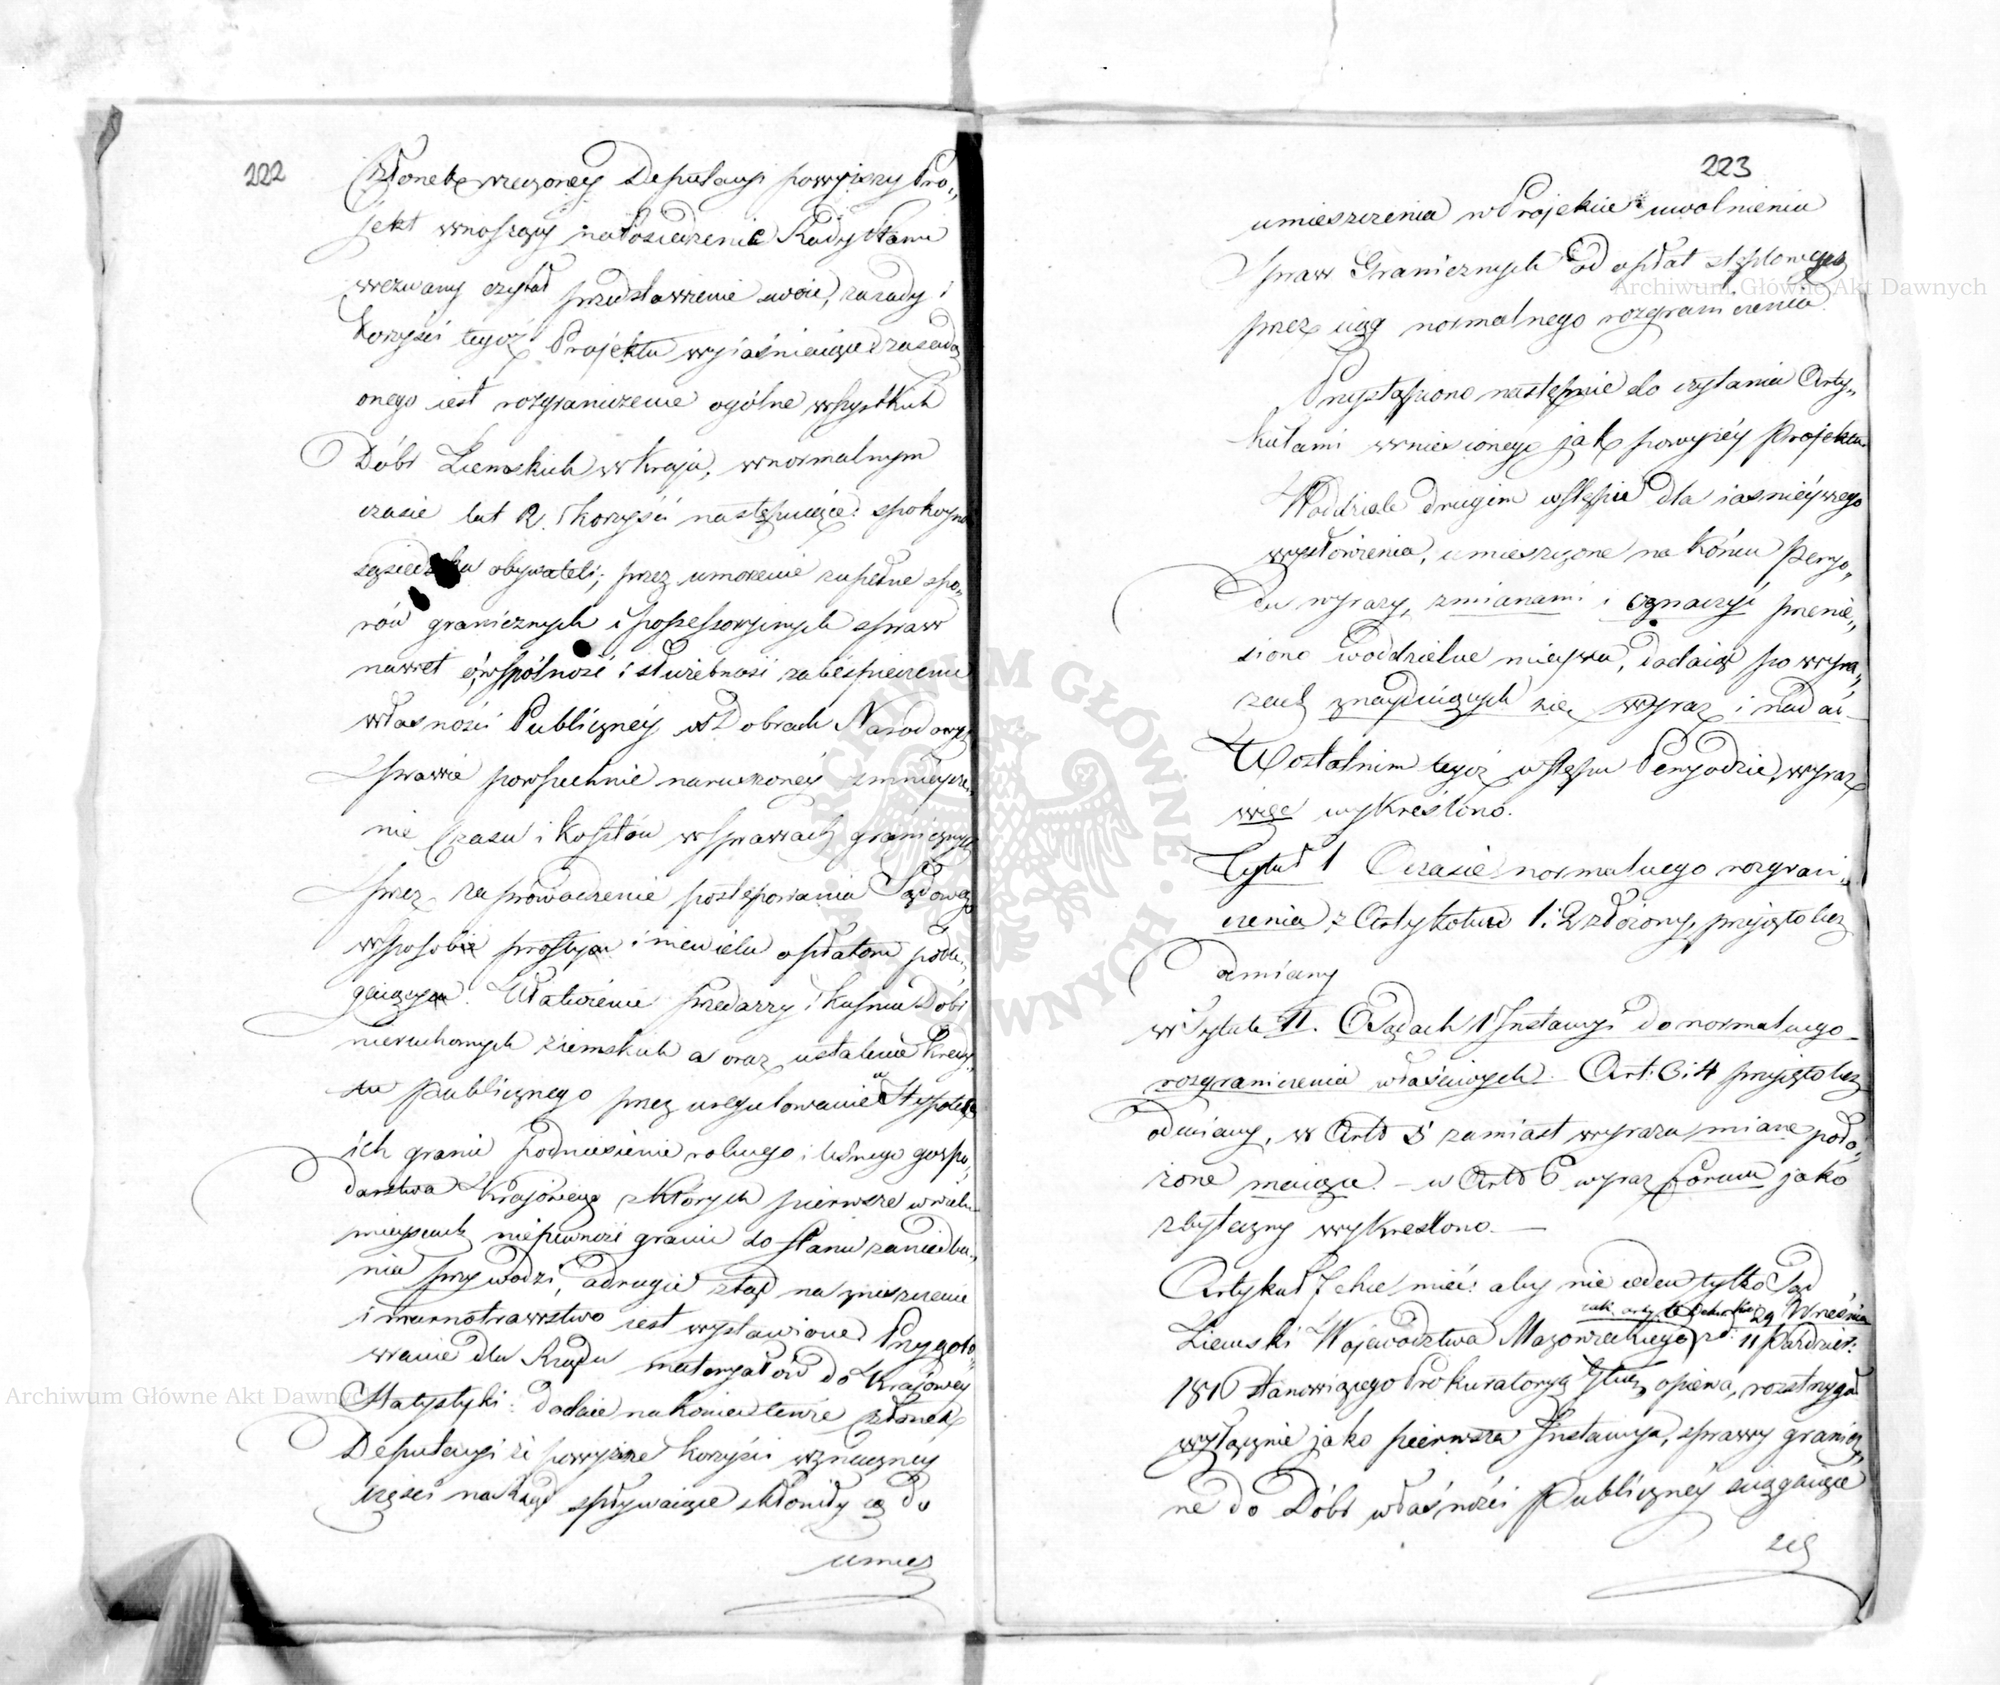 222
Członek rzeczoney Deputacyi powyższy Pro„
jekt wnoszący na Posiedzenie Rady Stanu
wezwany czytał przedstawienie swoie, zasady i
korzyści tegoż Projektu wyiaśniaiące zasadą
onego iest rozgraniczenie ogólne wszystkich
Dóbr Ziemskich w Kraju, w normalnym
czasie lat 12. korzyści następuiące: spokoyne
sąsiedztwa obywateli; przez umorzenie zupełne spo„
rów granicznych i possessoryinych spraw
nawet o wspólność i służebność zabespieczenie
własności Publiczney w Dobrach Narodowych
prawie powszechnie naruszoney zmnieysze„
nie czasu i kosztów w sprawach granicznych
przez zaprowadzenie postępowania Sądowego
w sposobie prostym i niewielu opłatom podle„
gaiącym. Ułatwienie przedaży i kupna Dóbr
nieruchomych ziemskich a oraz ustalenie kredy„
tu publicznego przez uregulowanie w Hypotece
ich granic podniesienie rolnego i leśnego gospo„
darstwa Krajowego z których pierwsze w wielu
mieyscach niepewność granic do stanu zaniedba„
nia przywodzi, a drugie ztąd na zniszczenie
i marnotrawstwo iest wystawione Przygoto„
wanie dla Rządu materyałów do Krajowey
Statystyki: dodaie na koniec tenże Członek
Deputacyi iż powyższe korzyści w znaczney
części na Rząd spływaiące skłoniły ią do
umiesz
223
umieszczenia w Projekcie uwolnienia
spraw Granicznych od opłat stęplowego
przez ciąg normalnego rozgraniczenia.
Przystąpiono następnie do czytania Arty„
kułami wniesionego jak powyżey Projektu
W oddziale drugim wstępu dla iaśnieyszego
wysłowienia, umieszczone na końcu Peryo„
du wyrazy, zmianami i oznaczyć przenie„
siono w oddzielne mieysca, dodaiąc po wyra„
zach znayduiących się wyraz i nadać
W ostatnim tegoż wstępu Peryodzie, wyraz
więc wykreślono.
Tytuł 1 O czasie normalnego rozgrani„
czenia z Artykułów 1. i 2 złożony, przyięto bez
odmiany
w Tytule II. O Sądach 1 Instancyi do normalnego
rozgraniczenia właściwych. Art: 3 i 4 przyięto bez
odmiany, w Art 5 zamiast wyrazu miane poło„
żone maiące — w Art 6 wyraz forum jako
zbyteczny wykreślono. —
Artykuł 7 chce mieć: aby nie ieden tylko Sąd
Ziemski Województwa Mazowieckiego, iak arty: 16 Dekretu z d: 29 Września 11 Paździer:
1816 stanowiącego Prokuratoryą opiewa, rozstrzygał
wyłącznie jako pierwsza Instancya, sprawy granicz„
ne do Dóbr własności Publiczney ściągaiące
się
Archiwum Główne Akt Dawnych
Archiwum Główne Akt Dawnych
ARCHIWUM GŁÓWNE AKT DAWNYCH